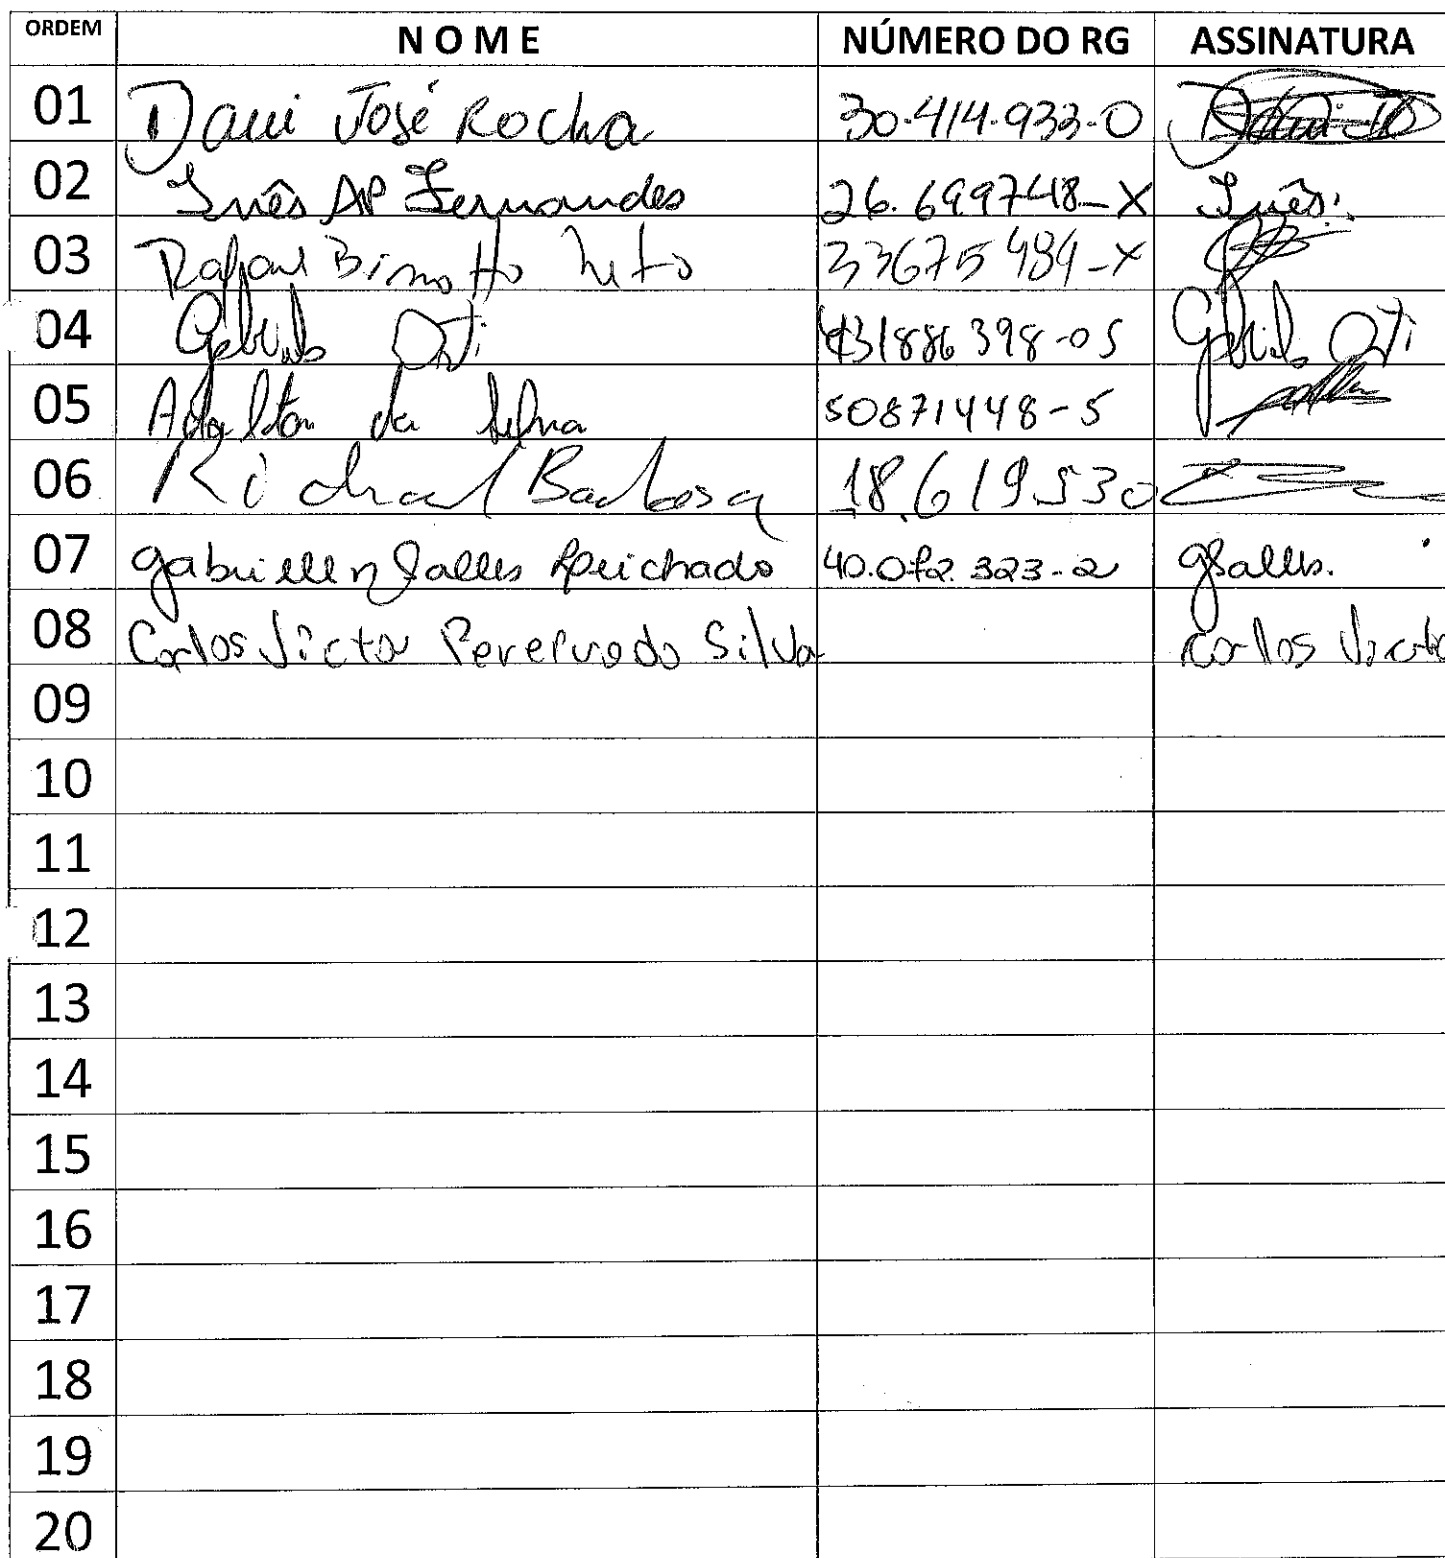 ORDEM NOME NÚMERO DO RG ASSINATURA
01 Davi José Rocha 30.414.933-0
02 Inês AP Fernandes 26.699748-X Inês
03 Rafael Bissotto Neto 33675484-X
04 Gabriela Orti 431886398-05 Gabriela Orti
05 Adailton da Silva 50871448-5
06 Richard Barbosa 18.619.530
07 Gabriellen Salles 40.072.323-2 GSalles.
08 Carlos Victor Silva Carlos Victo
09
10
11
12
13
14
15
16
17
18
19
20